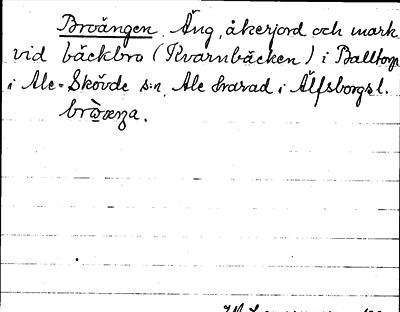 Broängen Äng, åkerjord och mark
vid bäckbro (Kvarnbäcken) i Balltorp
i Ale-Skövde s:n, Ale härad i Älfsborgs l.